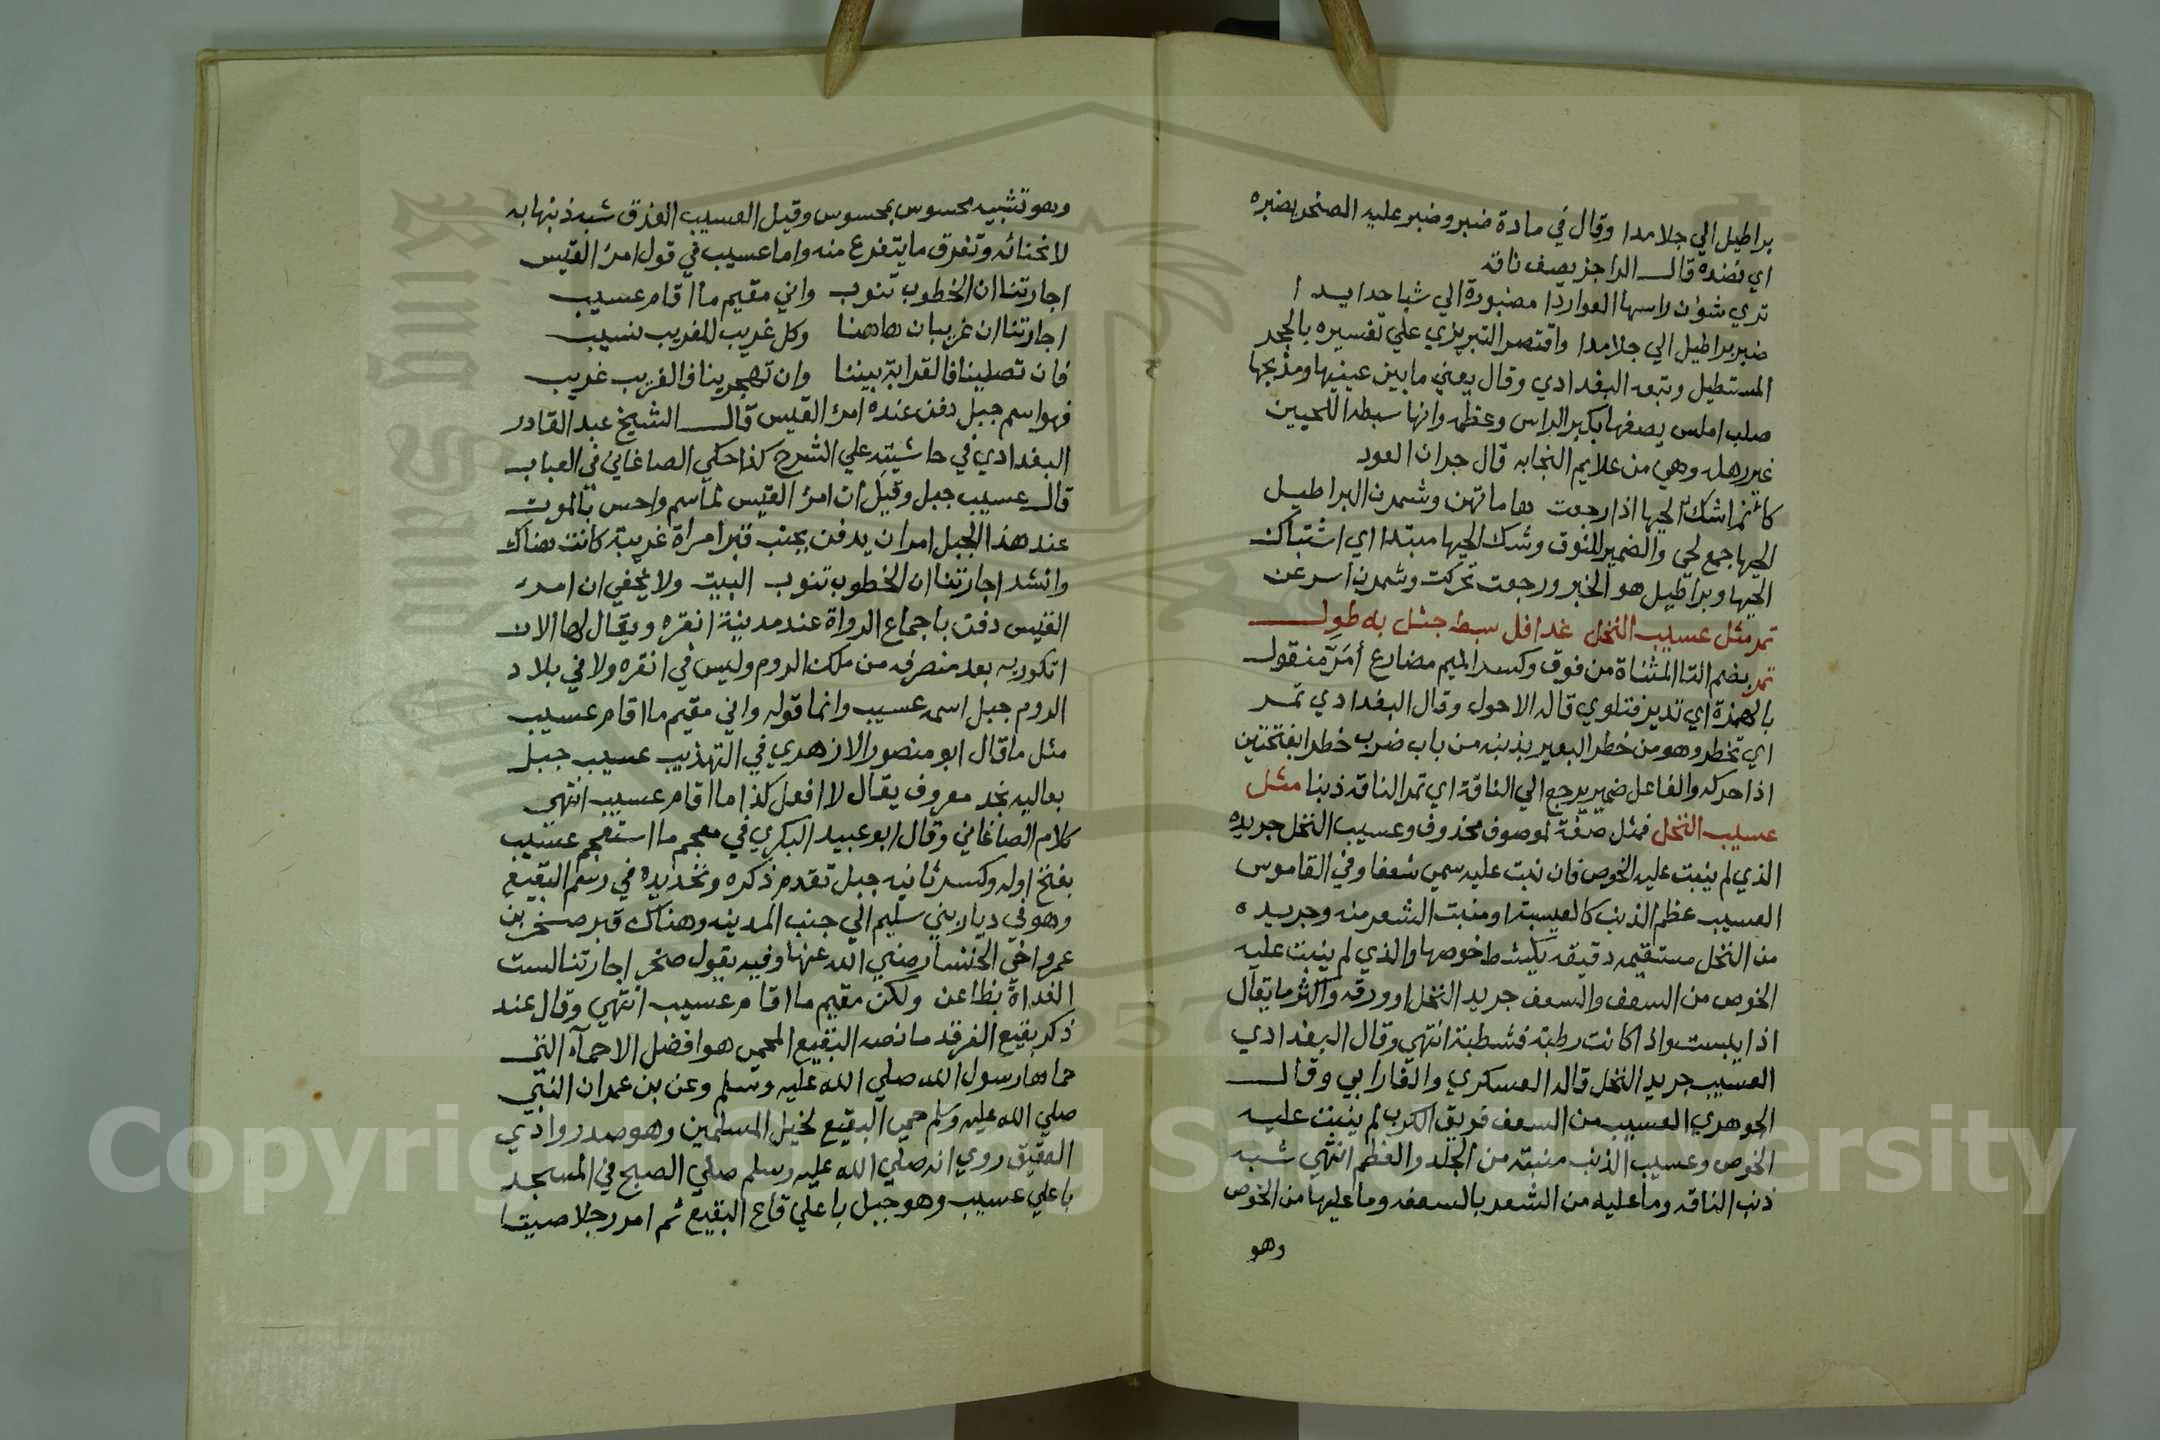 براطيل الي جلامدا وقال في مادة ضبر وضبر عليه الصخر يضبره
اي نضده قال الراجز يصف ناقه
تري شؤن راسها العواردا مضبورة الي شبا حدايدا
ضبر براطيل الي جلامدا واقتصر التبريزي علي تفسيره بالحجر
المستطيل وتبعه البغدادي وقال يعني ما بين عينيها ومذبحها
صلب املس يصفها بكبر الراس وعظمه وانها سبطه اللحيين
غير رهله وهي من علايم النجابه قال جران العود
كانما شك الحيها اذا رجعت هاماتهن وشمرن البراطيل
الحيها جمع لحي والضمير للنوق وشك الحيها مبتدا اي اشتباك
الحيها وبراطيل هو الخبر ورجعت تحركت وشمرن اسرعن
تمر مثل عسيب النخل غدافل سبط جثل به طول
تمر بضم التا المثناة من فوق وكسر الميم مضارع أمَرّ منقول
بالهمزة اي تدير فتلوي قاله الاحول وقال البغدادي تمر
اي تخطر وهو من خطر البعير بذنبه من باب ضرب خطرا بفتحتين
اذا حركه والفاعل ضمير يرجع الي الناقة اي تمر الناقه ذنبا مثل
عسيب النخل فمثل صفة لموصوف محذوف وعسيب النخل جريده
الذي لم ينبت عليه الخوص فان نبت عليه سمي سعفا وفي القاموس
العسيب عظم الذنب كالعسيبة او منبت الشعر منه وجريده
من النخل مستقيمه دقيقه يكشط خوصها والذي لم ينبت عليه
الخوص من السعف والسعف جريد النخل او ورقه واكثر ما يقال
اذا يبست واذا كانت رطبة فشطبة انتهي وقال البغدادي
العسيب جريد النخل قاله العسكري والفارابي وقال
الجوهري العسيب من السعف فويق الكرب لم ينبت عليه
الخوص وعسيب الذنب منبته من الجلد والعظم انتهي شبه
ذنب الناقه وما عليه من الشعر بالسعفه وما عليها من الخوص
وهو
وهو تشبيه محسوس بمحسوس وقيل العسيب العذق شبه ذنبها به
لانحنائه وتفرق ما يتفرع منه واما عسيب في قول امرئ القيس
اجارتنا ان الخطوب تنوب واني مقيم ما اقام عسيب
اجارتنا ان غريبان هاهنا وكل غريب للغريب نسيب
فان تصلينا فالقرابة بيننا وان تهجرينا فالغريب غريب
فهو اسم جبل دفن عنده امرء القيس قال الشيخ عبد القادر
البغدادي في حاشيته علي الشرح كذا حكي الصاغاني في العباب
قال عسيب جبل وقيل ان امرئ القيس لما سم واحس بالموت
عند هذا الجبل امر ان يدفن بجنب قبر امراة غريبة كانت هناك
وانشد اجارتنا ان الخطوب تنوب البيت ولا يخفي ان امرء
القيس دفن باجماع الرواة عند مدينة انقره ويقال لها الان
انكوريه بعد منصرفه من ملك الروم وليس في انقره ولا في بلاد
الروم جبل اسمه عسيب وانما قوله واني مقيم ما اقام عسيب
مثل ما قال ابو منصور الازهري في التهذيب عسيب جبل
بعاليه نجد معروف يقال لا افعل كذا ما اقام عسيب انتهي
كلام الصاغاني وقال ابو عبيد البكري في معجم ما استعجم عسيب
بفتح اوله وكسر ثانيه جبل تقدم ذكره وتحديده في رسم البقيع
وهو في ديار بني سليم الي جنب المدينه وهناك قبر صخر بن
عمرو اخي الخنسا رضي الله عنها وفيه يقول صخر اجارتنا لست
الغداة بظاعن ولكن مقيم ما اقام عسيب انتهي وقال عند
ذكر بقيع الغرقد ما نصه البقيع المحمي هو افضل الاحماء التي
حماها رسول الله صلي الله عليه وسلم وعن بن عمر ان النبي
صلي الله عليه وسلم حمي البقيع لخيل المسلمين وهو صدر وادي
العقيق روي انه صلي الله عليه وسلم صلي الصبح في المسجد
باعلي عسيب وهو جبل باعلي قاع البقيع ثم امر رجلا صيتا
Copyright © King Saud University
1957
King Saud University